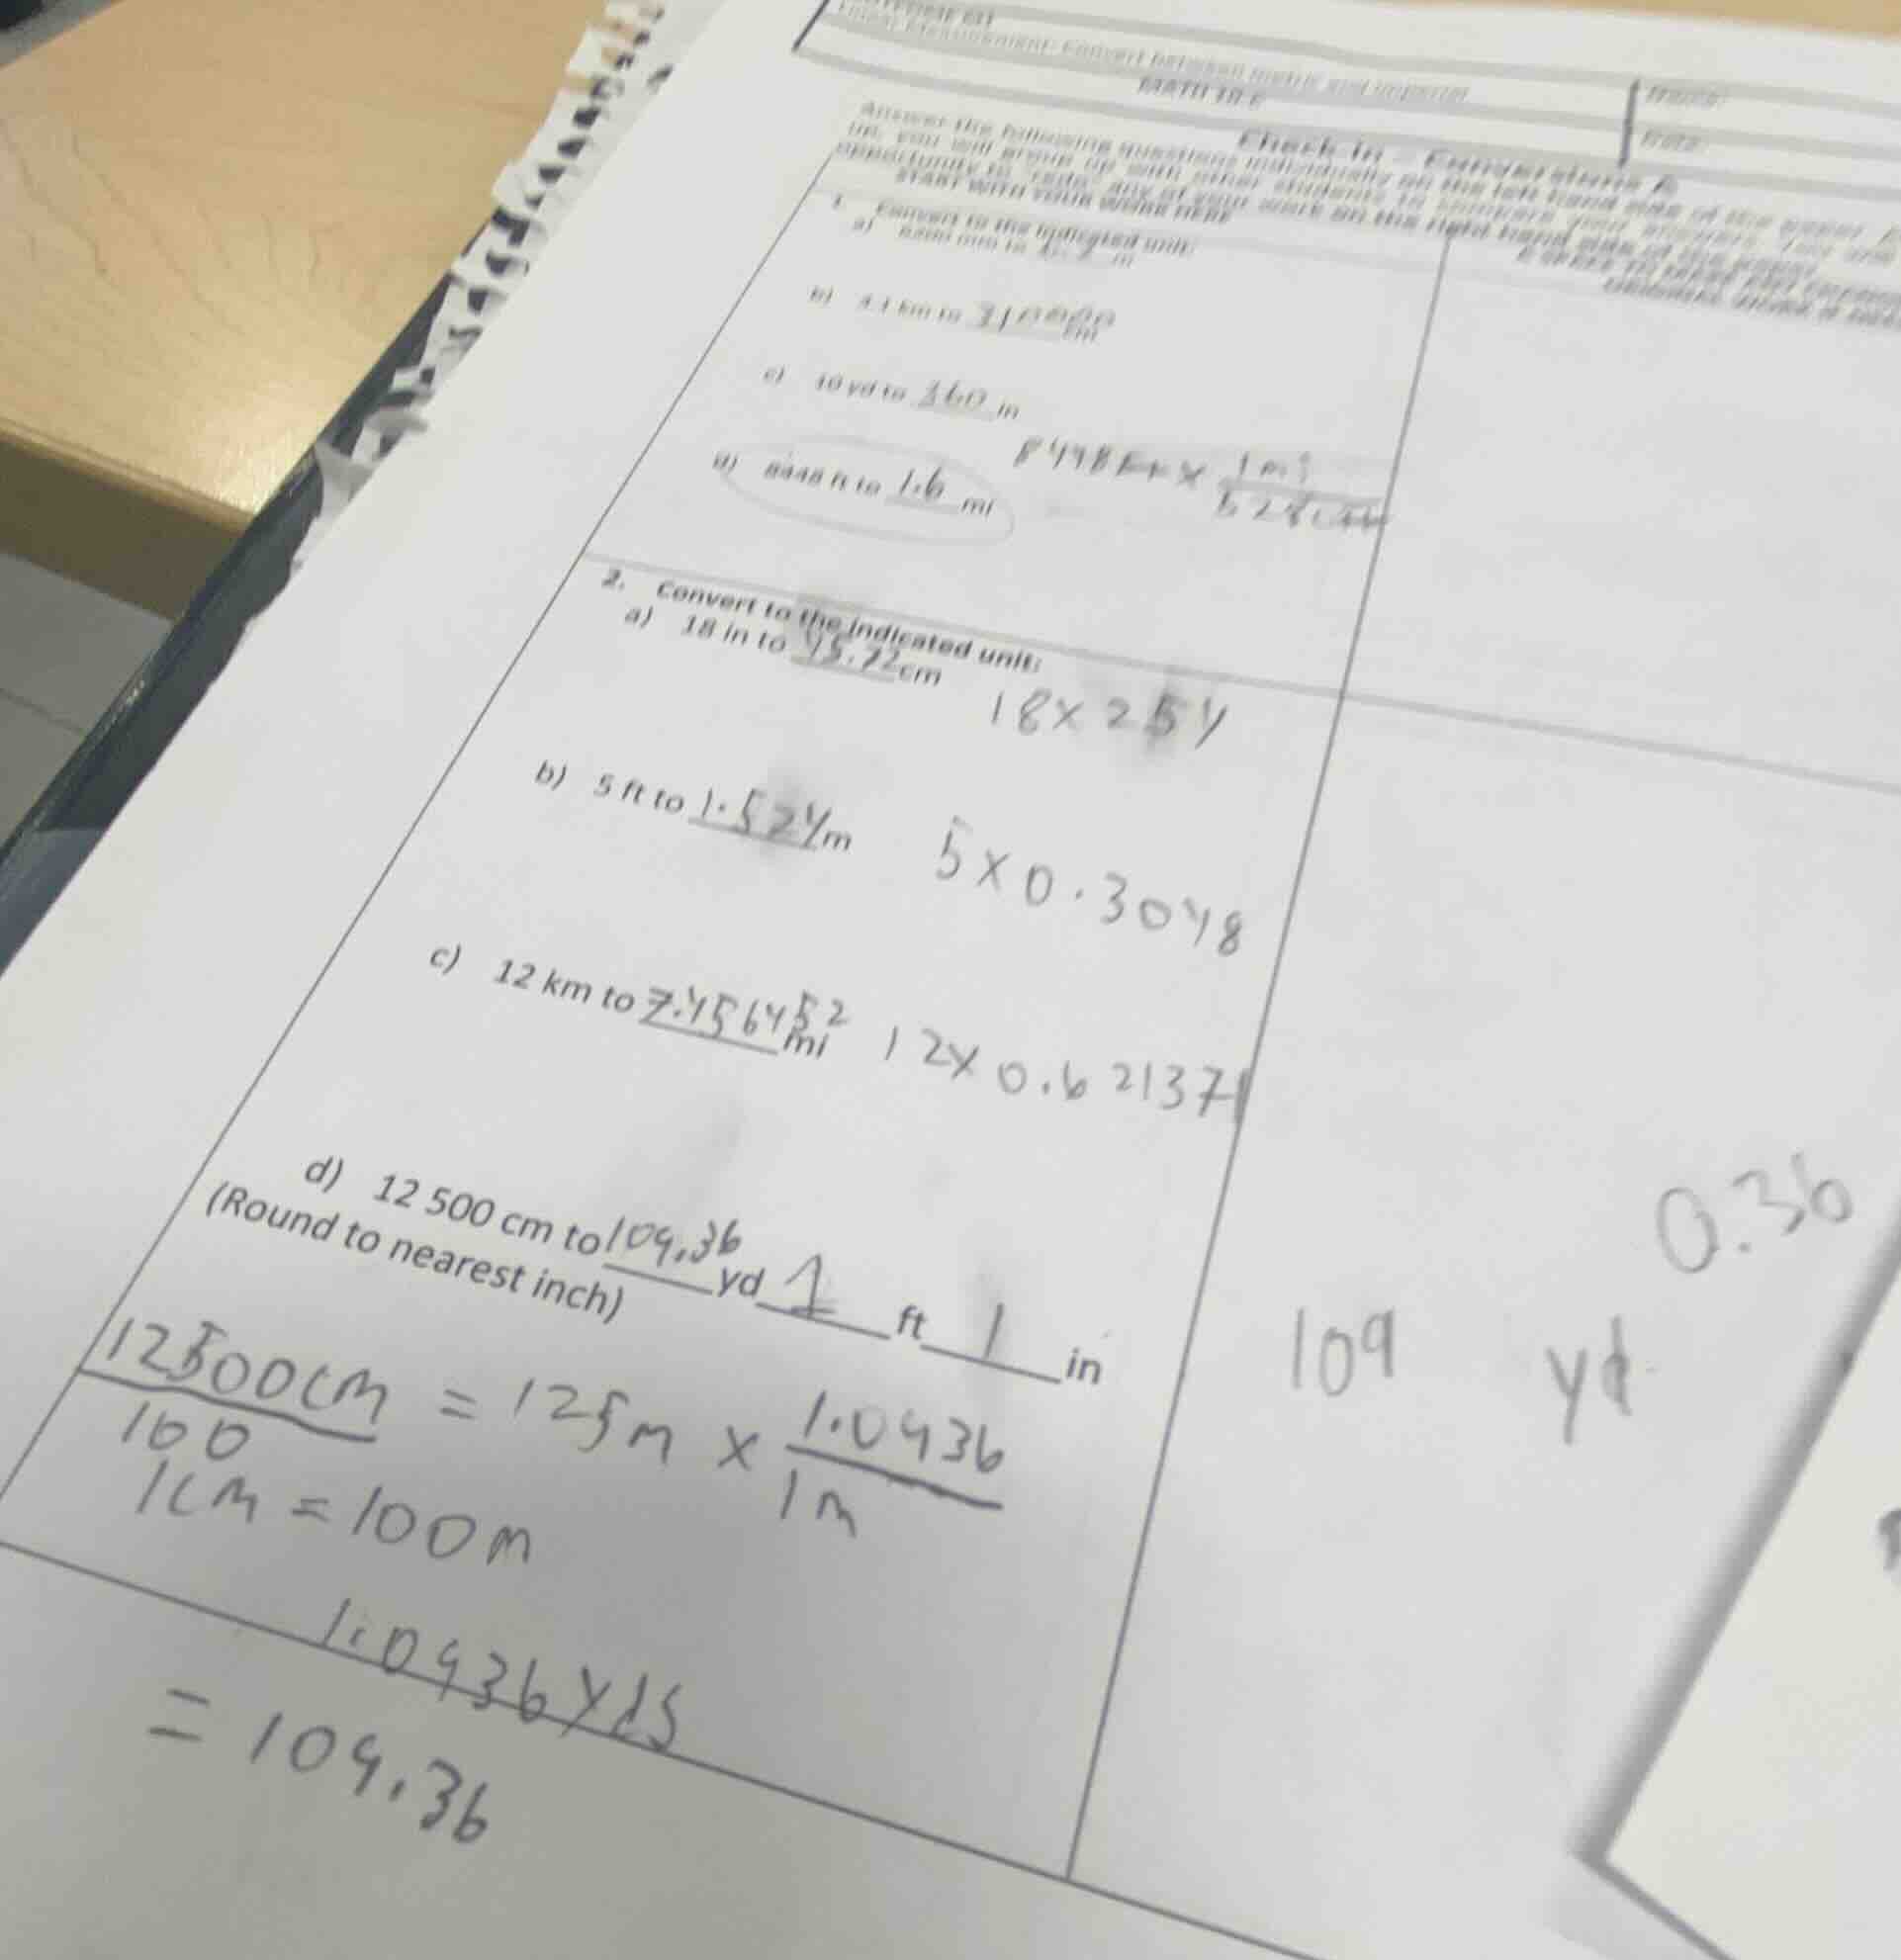 Linear Measurement: Convert between metric and imperial
MATH 10 C
Name:
Date:
Check in - Conversions A
Answer the following questions individually on the left hand side of the paper.
up, you will group up with other students to compare your answers. You
opportunity to "redo" any of your work on the right hand side of the paper.
START WITH YOUR WORK HERE
1. Convert to the indicated unit:
a) mm to m
b) 3.1 km to 310000 cm
c) 10 yd to 360 in
d) 8448 ft to 1.6 mi
8448 ft x 1 mi
5280 ft
2. Convert to the indicated unit:
a) 18 in to 45.72 cm
18 x 254
b) 5 ft to 1.524 m
5 x 0.3048
c) 12 km to 7.456452 mi
12 x 0.621371
d) 12 500 cm to 109.36 yd 1 ft 1 in
(Round to nearest inch)
0.36
109 yd
12500 cm = 125 m x 1.0936
100 1 m
1 cm = 100 m
1.0936 yds
= 109.36